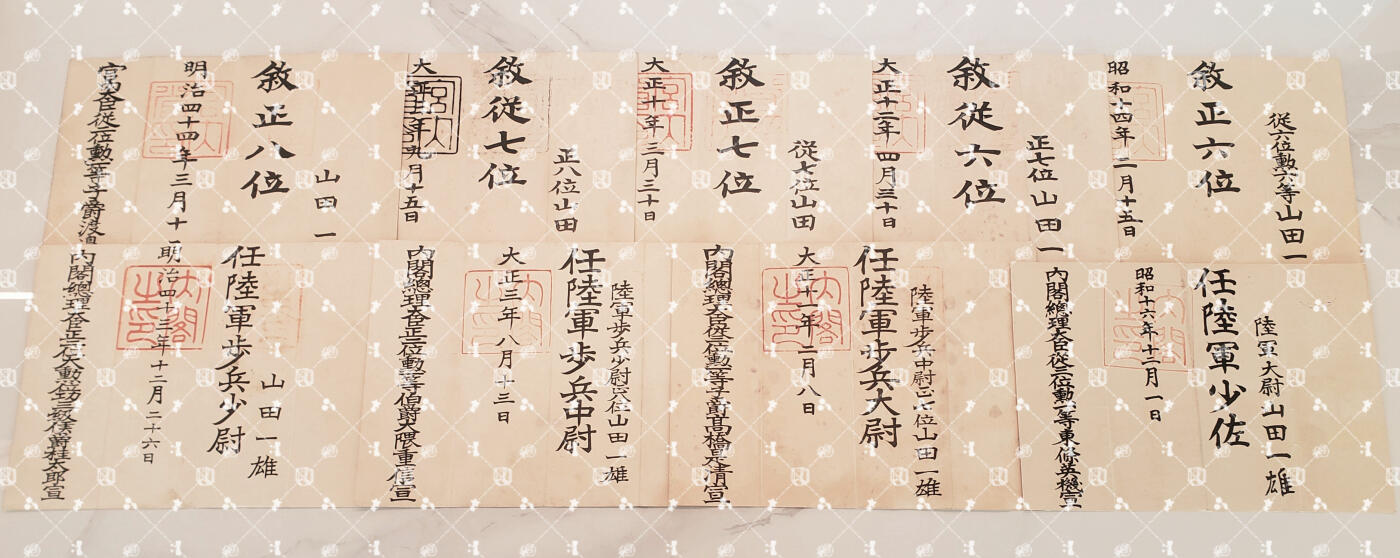 從六位勲六等山田一
敘正六位
昭和十四年二月十五日
正七位山田一
敘從六位
大正十二年四月三十日
從七位山田
敘正七位
大正十年三月三十日
正八位山田
敘從七位
大正年九月十五日
山田一
敘正八位
明治四十四年三月十一
宮内大臣從二位勲一等子爵渡
陸軍大尉山田一雄
任陸軍少佐
昭和十六年十二月一日
内閣總理大臣從三位勲一等東條英機宣
陸軍歩兵中尉正七位山田一雄
任陸軍歩兵大尉
大正十一年二月八日
内閣之印
内閣總理大臣從二位勲一等子爵髙橋是清宣
陸軍歩兵少尉正八位山田一雄
任陸軍歩兵中尉
大正三年八月十三日
内閣之印
内閣總理大臣正二位勲一等伯爵大隈重信宣
山田一雄
任陸軍歩兵少尉
明治四十三年十二月二十六日
内閣之印
内閣總理大臣正二位大勲位功三級侯爵桂太郎宣